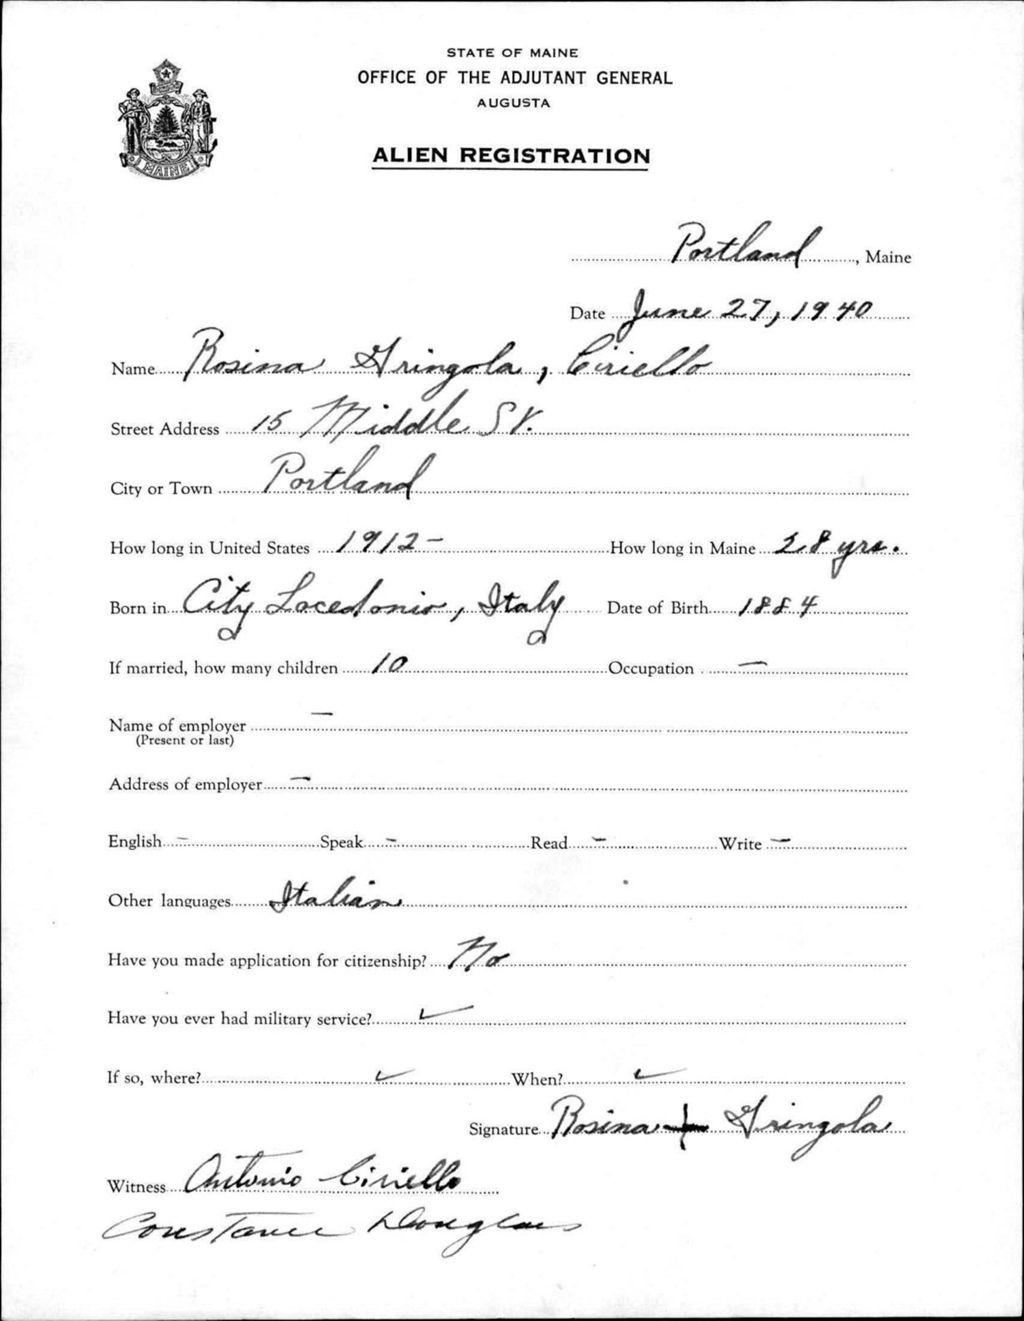 STATE OF MAINE
OFFICE OF THE ADJUTANT GENERAL
AUGUSTA
ALIEN REGISTRATION
MAINE
Portland, Maine
Date June 27, 1940
Name Rosina Gringola, Ciriello
Street Address 15 Middle St.
City or Town Portland
How long in United States 1912 - How long in Maine 28 yrs.
Born in City Lacedonia, Italy Date of Birth 1884
If married, how many children 10 Occupation —
Name of employer —
(Present or last)
Address of employer —
English - Speak - Read - Write -
Other languages Italian
Have you made application for citizenship? No
Have you ever had military service? ✓
If so, where? ✓ When? ✓
Signature Rosina + Gringola
Witness Antonio Ciriello
Constance Douglass